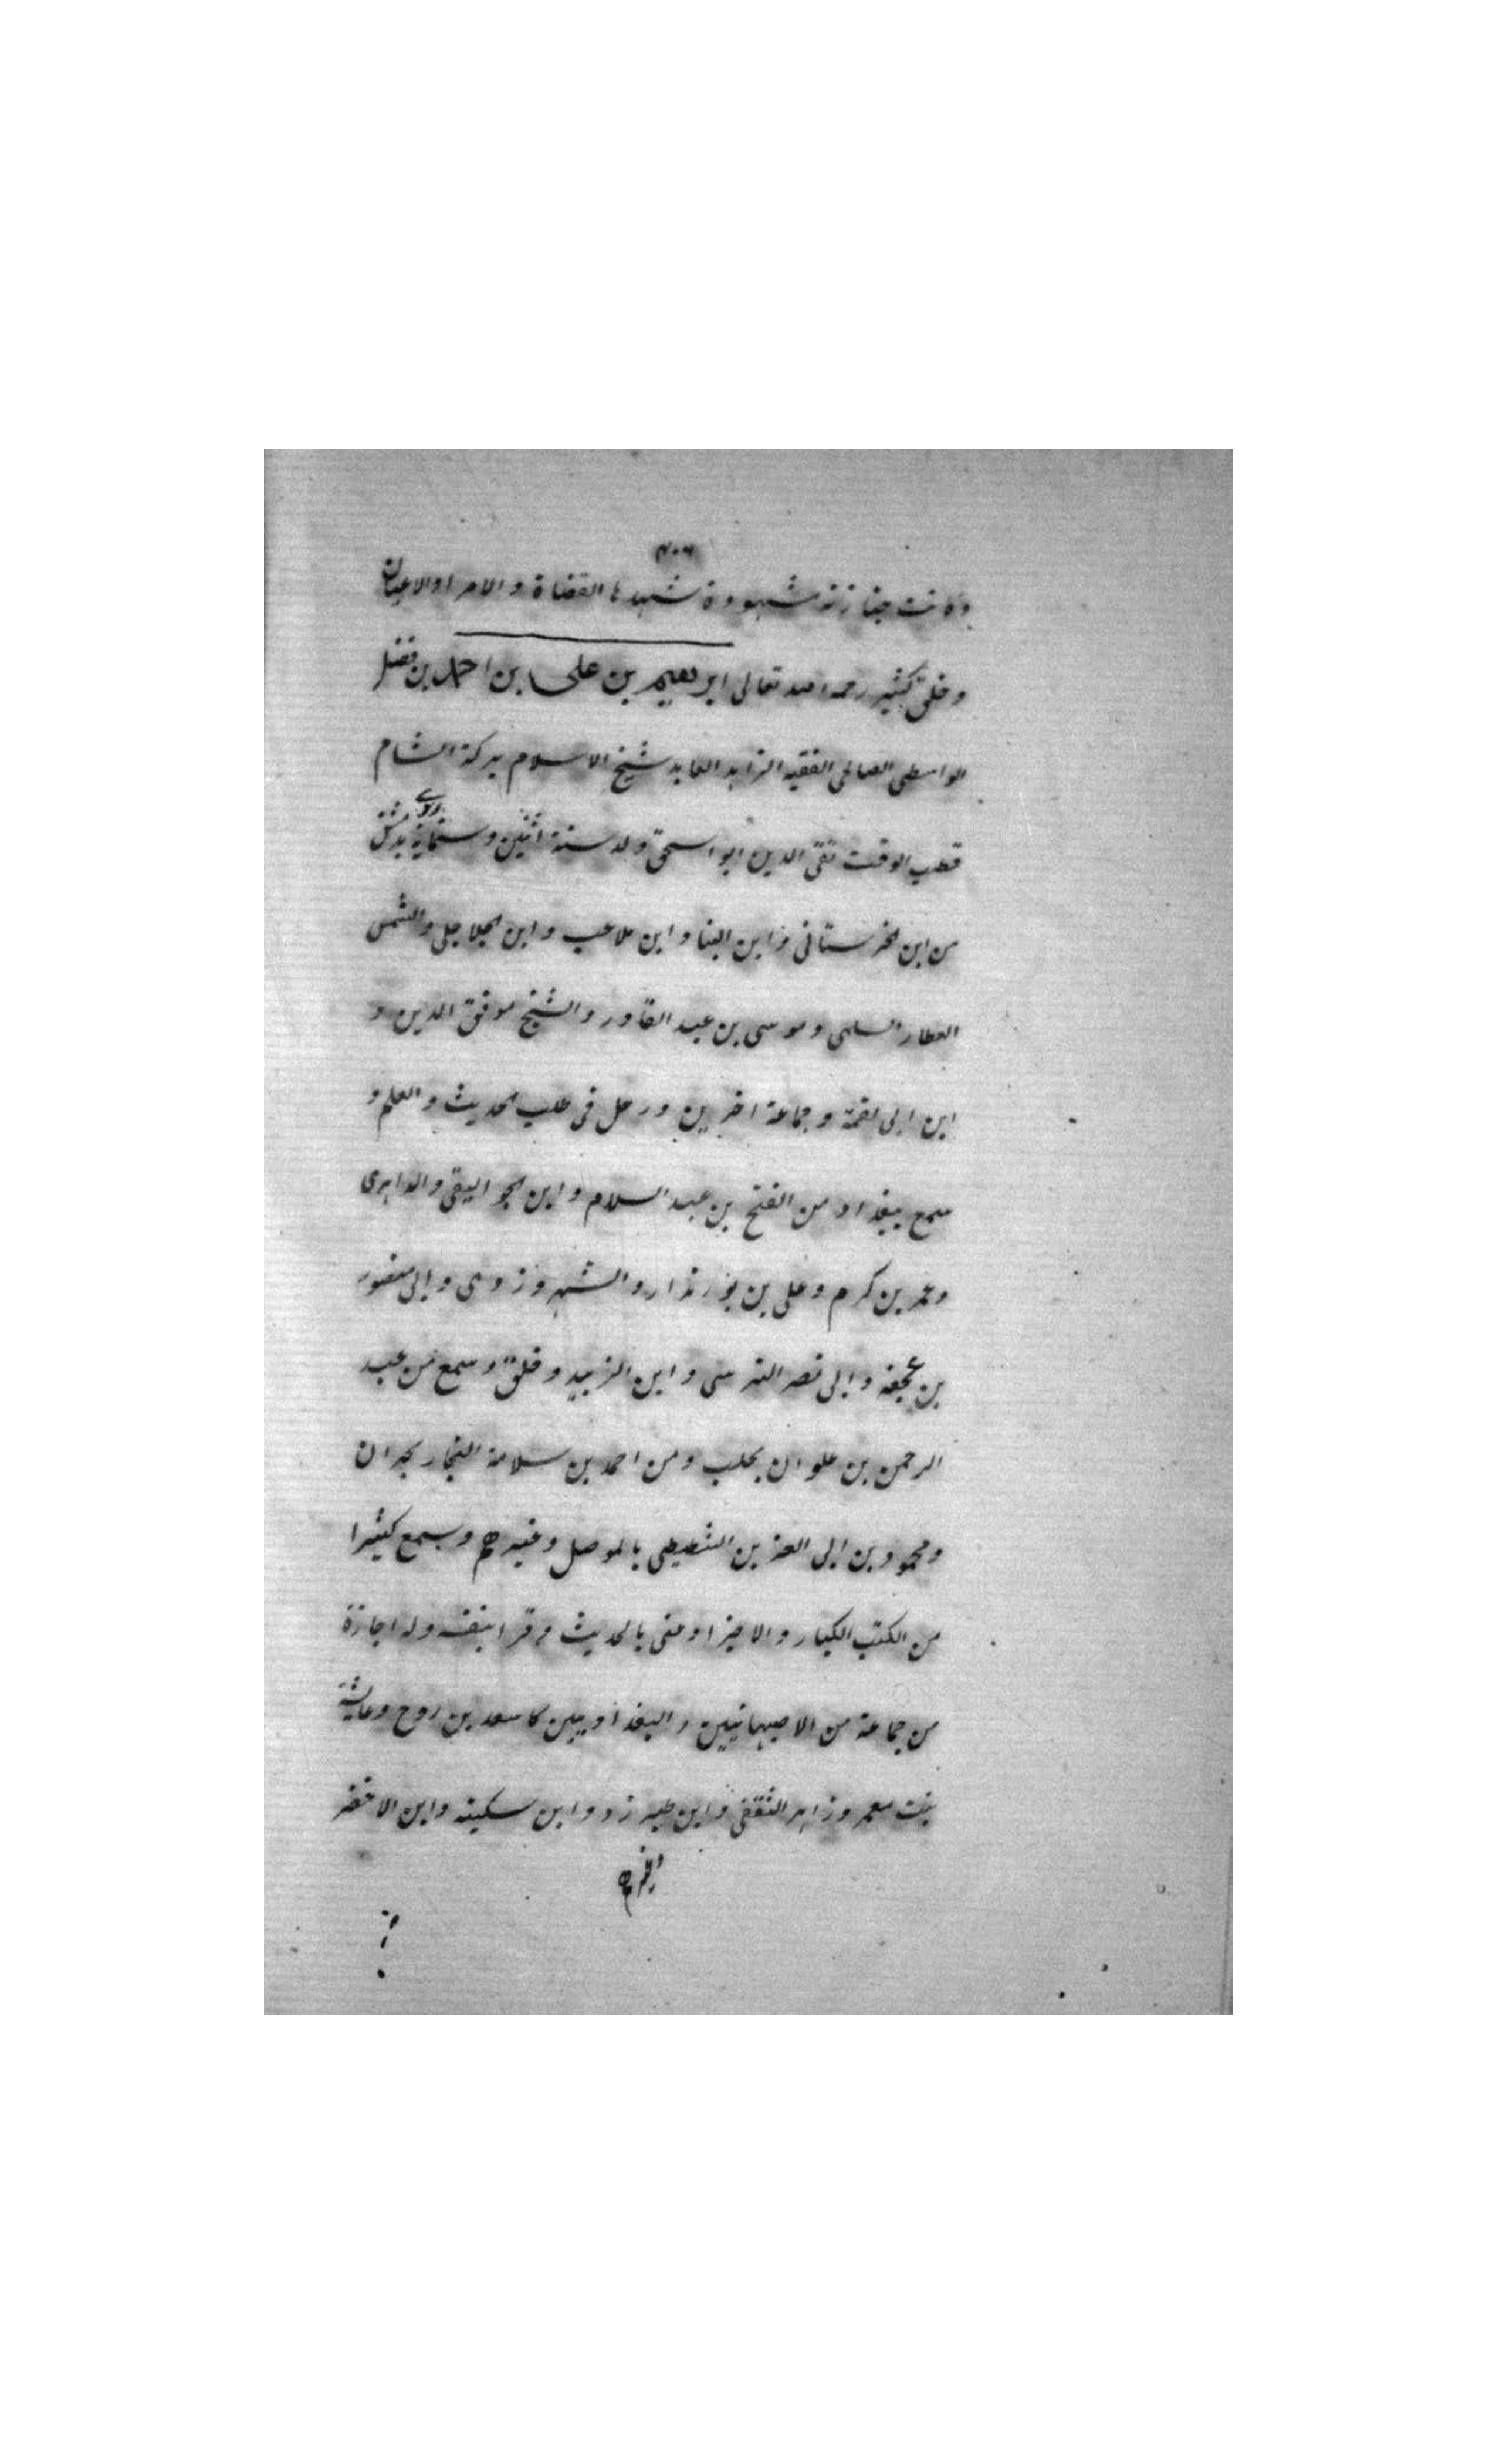 ٤٠٦
وكانت جنازته مشهودة شهدها القضاة والامراء والاعيان
وخلق كثير رحمه الله تعالى ابرهيم بن على بن احمد بن فضل
الواسطى الصالحى الفقيه الزاهد العابد شيخ الاسلام بركة الشام
قطب الوقت تقى الدين ابو اسحق ولد سنة اثنين وستماية بدمشق
من ابن الحرستانى وابن البنا وابن ملاعب وابن الجلاجلى والشمس
العطار السلمى وموسى بن عبد القادر والشيخ موفق الدين و
ابن ابى لقمة وجماعة اخرين ورحل فى طلب الحديث والعلم و
سمع ببغداد من الفتح بن عبد السلام وابن الجواليقى والداهرى
وعمر بن كرم وعلى بن بورنداز والشهروزدى وابى منصور
بن عجفه وابى نصر النرسى وابن الزبيد وخلق وسمع من عبد
الرحمن بن علوان بحلب ومن احمد بن سلامة النجار بحران
ومحمود بن ابى العز بن الشعيطى بالموصل وغيرهم وسمع كثيرا
من الكتب الكبار والاجزا وعنى بالحديث وقرا بنفسه وله اجازة
من جماعة من الاصبهانيين والبغداديين كاسعد بن روح وعايشة
بنت معمر وزاهر الثقفى وابن طبرزد وابن سكينة وابن الاخضر
وغيرهم